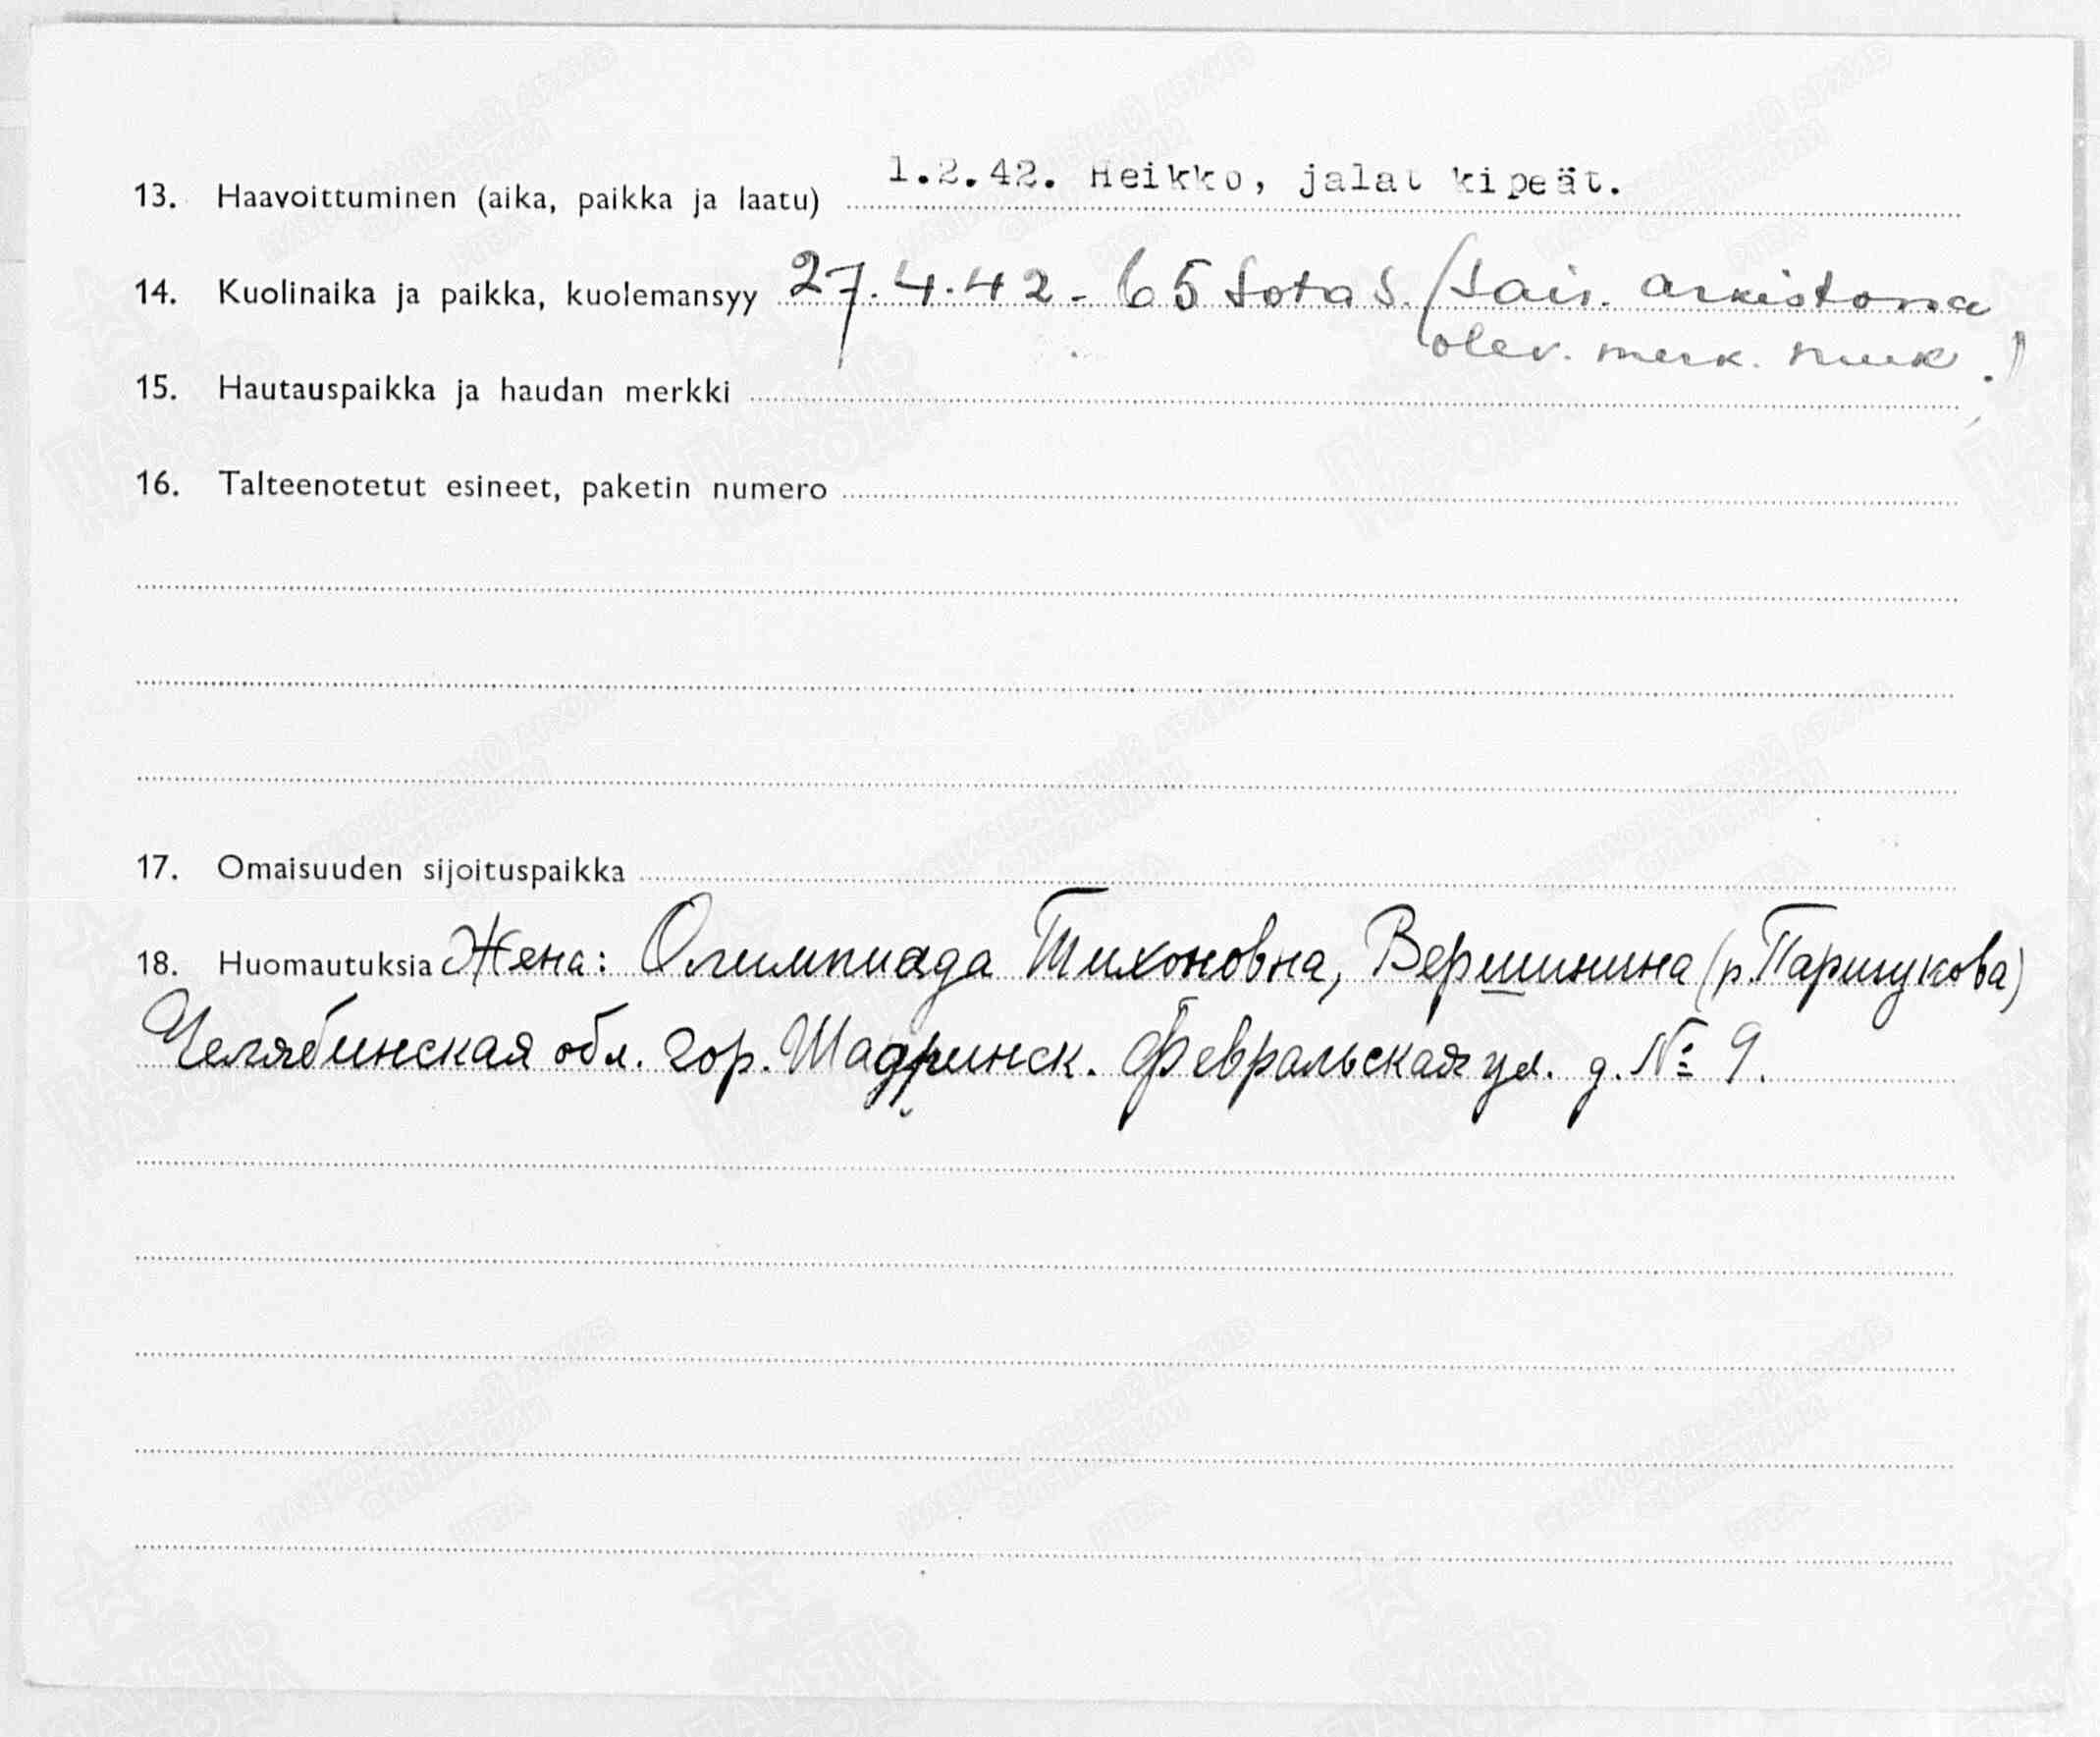 13. Haavoittuminen (aika, paikka ja laatu) 1.2.42. Heikko, jalat kipeät.
14. Kuolinaika ja paikka, kuolemansyy 27.4.42 - 65 Sota S. (Sair. arkistona
olev. merk. muk.)
15. Hautauspaikka ja haudan merkki
16. Talteenotetut esineet, paketin numero
17. Omaisuuden sijoituspaikka
18. Huomautuksia Жена: Олимпиада Тихоновна, Вершинина (р. Паршукова)
Челябинская обл. гор. Шадринск. Февральская ул. д. № 9.